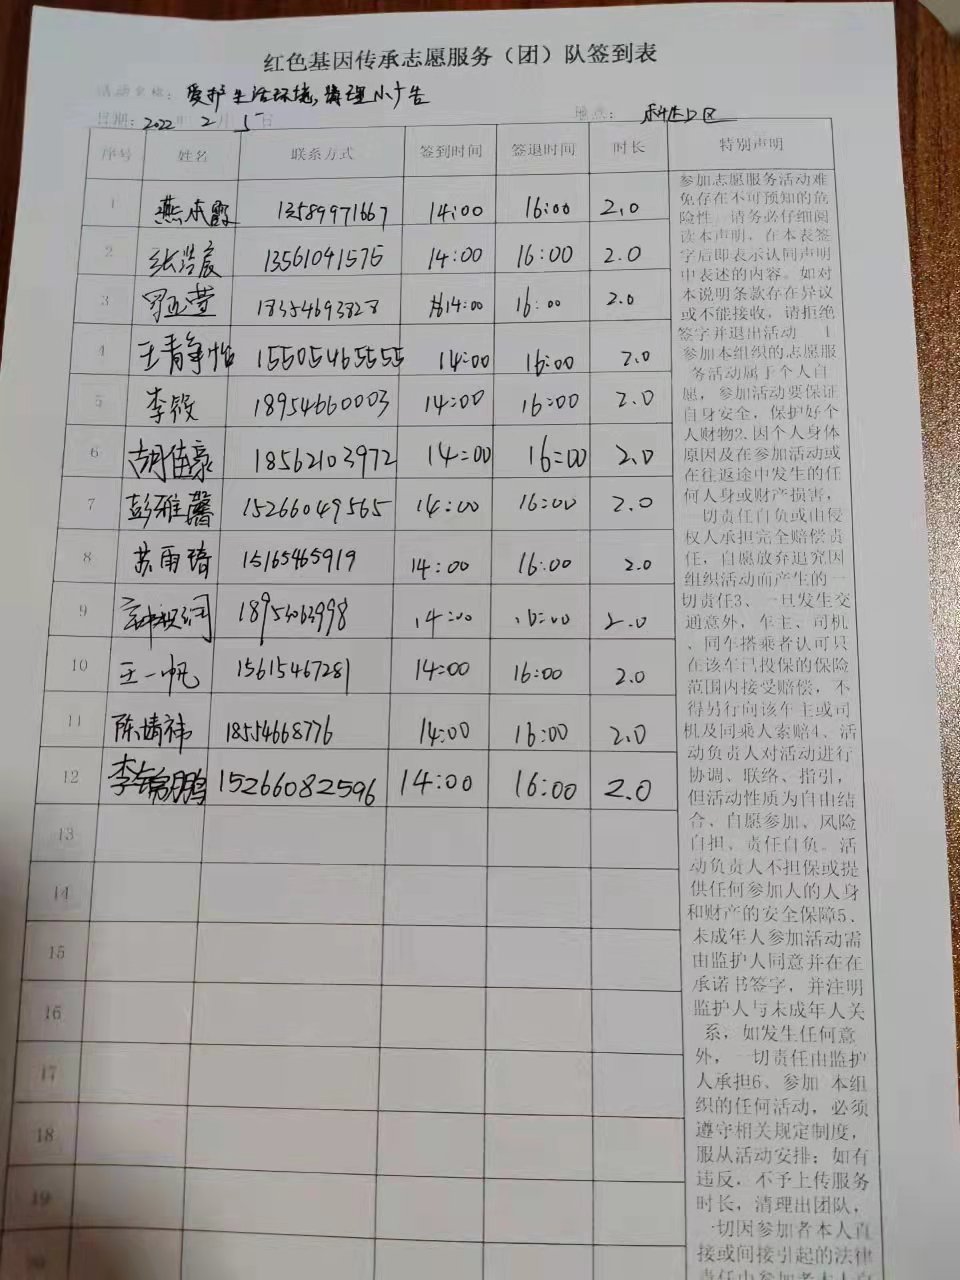 红色基因传承志愿服务（团）队签到表
活动名称：爱护生活环境，清理小广告
日期：2022年2月5日 地点：
序号 姓名 联系方式 签到时间 签退时间 时长 特别声明
1 燕 13589971667 14:00 16:00 2.0
2 张浩宸 13561041576 14:00 16:00 2.0
3 18354693828 14:00 16:00 2.0
4 王青争怡 15505465555 14:00 16:00 2.0
5 李毅 18954660003 14:00 16:00 2.0
6 胡佳豪 18562103972 14:00 16:00 2.0
7 彭雅馨 15266049565 14:00 16:00 2.0
8 苏雨琦 15165465919 14:00 16:00 2.0
9 14:00 16:00 2.0
10 王一帆 15615467281 14:00 16:00 2.0
11 陈靖祎 18554668776 14:00 16:00 2.0
12 李锦鹏 15266082596 14:00 16:00 2.0
13
14
15
16
17
18
19
20
参加志愿服务活动难
免存在不可预知的危
险性，请务必仔细阅
读本声明，在本表签
字后即表示认同声明
中表述的内容。如对
本说明条款存在异议
或不能接收，请拒绝
签字并退出活动 1
参加本组织的志愿服
务活动属于个人自
愿，参加活动要保证
自身安全，保护好个
人财物2、因个人身体
原因及在参加活动或
在往返途中发生的任
何人身或财产损害，
一切责任自负或由侵
权人承担完全赔偿责
任，自愿放弃追究因
组织活动而产生的一
切责任3、一旦发生交
通意外，车主、司机
、同车搭乘者认可只
在该车已投保的保险
范围内接受赔偿，不
得另行向该车主或司
机及同乘人索赔4、活
动负责人对活动进行
协调、联络、指引，
但活动性质为自由结
合、自愿参加、风险
自担、责任自负。活
动负责人不担保或提
供任何参加人的人身
和财产的安全保障5、
未成年人参加活动需
由监护人同意并在在
承诺书签字，并注明
监护人与未成年人关
系，如发生任何意
外，一切责任由监护
人承担6、参加 本组
织的任何活动，必须
遵守相关规定制度，
服从活动安排；如有
违反，不予上传服务
时长，清理出团队，
一切因参加者本人直
接或间接引起的法律
责任由参加者本人自